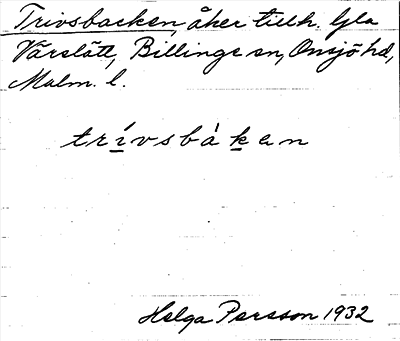 Trivsbacken, åker tillh. Gla
Vårslätt, Billinge sn, Onsjö hd,
Malm. l.
trívsbàkan
Helga Persson 1932